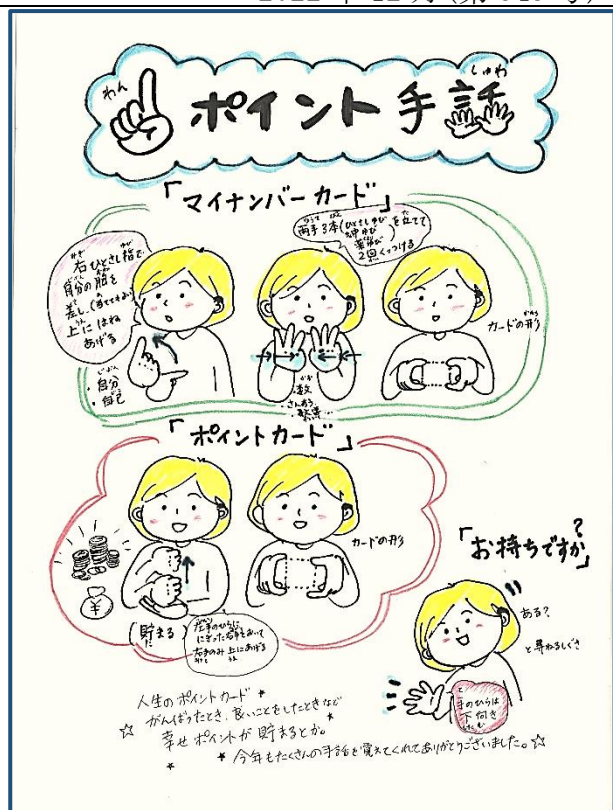 わん
ポイント手話
しゅわ
「マイナンバーカード」
みぎ
右ひとさし指で
じぶん
自分の胸を
差し(当ててもよい)
上にはねあげる
・自分
じこ
・自己
りょうて
両手3本(ひとさしゆび
中ゆび
薬ゆび)を立てて
2回くっつける
かず
・数
・さんすう
・数学
カードの形
「ポイントカード」
(貯まる)
左手のひらに
にぎった右手をおいて
右手のみ上にあげる
カードの形
¥
「お持ちですか?」
ある?
と尋ねるしぐさ
手のひらは
下向き
人生のポイントカード
がんばったとき、良いことをしたときなど
幸せポイントが貯まるとか。
今年もたくさんの手話を覚えてくれてありがとうございました。